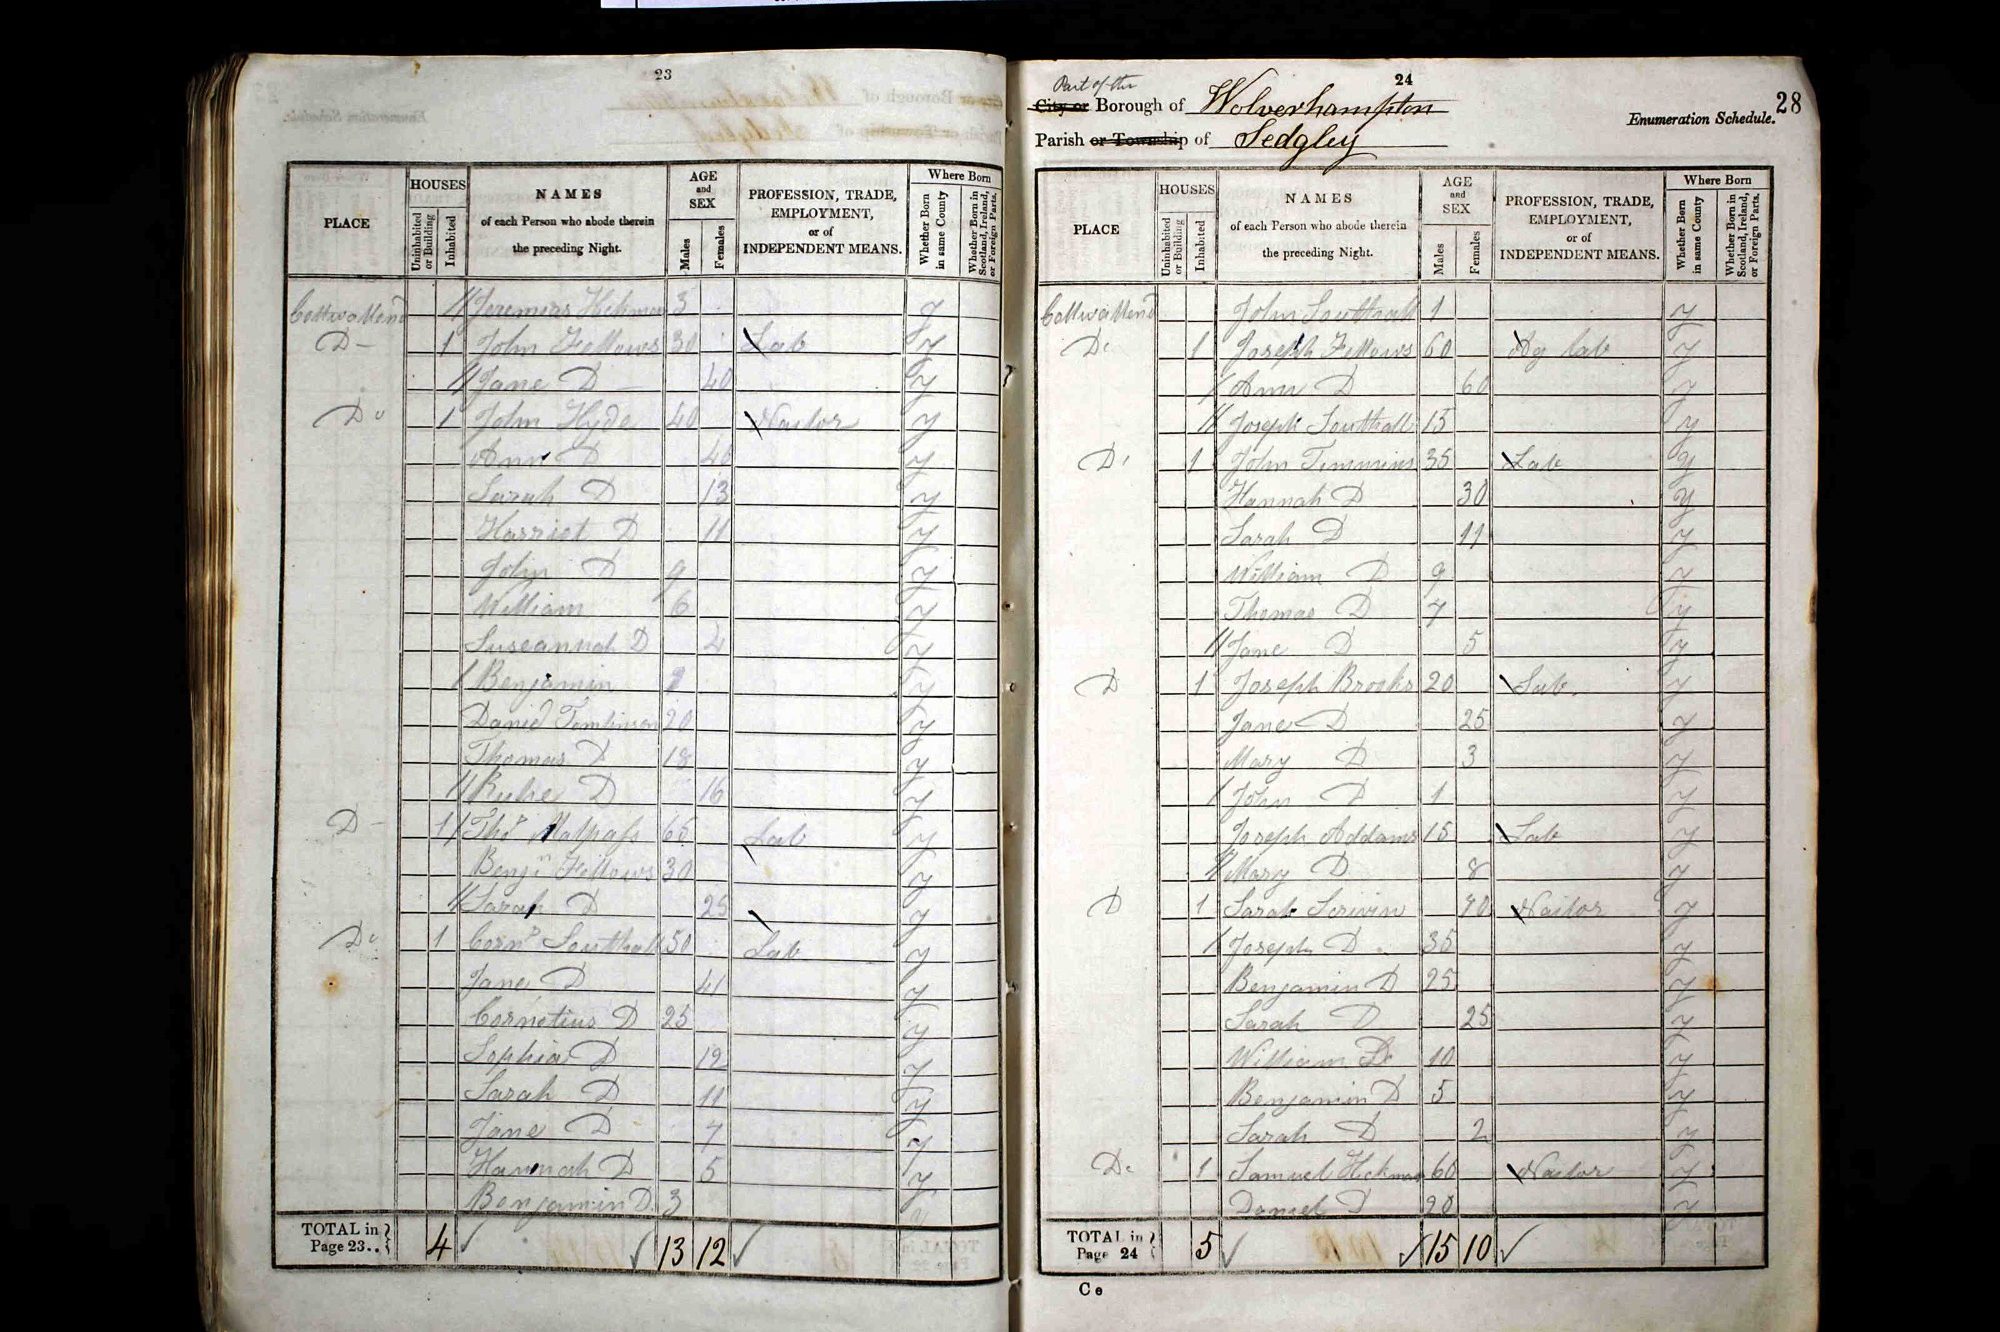 23
HOUSES
NAMES
AGE
and
SEX
PROFESSION, TRADE,
EMPLOYMENT,
or of
INDEPENDENT MEANS.
Where Born
PLACE
Uninhabited
or Building
Inhabited
of each Person who abode therein
the preceding Night.
Males
Females
Whether Born
in same County
Whether Born in
Scotland, Ireland,
or Foreign Parts.
Jeremias Hickman 5 y
D 1 John Fellows 30 Lab y
Jane D 40 y
Do 1 John Hyde 40 Nailor y
Ann D 40 y
Sarah D 13 y
Harriet D 11 y
John D 9 y
William 6 y
Suseannah D 4 y
Benjamin y
Daniel Tomlinson 20 y
Thomas D 18 y
D 16 y
D 1 Thos Malpass 65 Lab y
Benjn Fellows 30 y
Sarah D 25 y
Do 1 Corns Southall 50 Lab y
Jane D 41 y
Cornelius D 25 y
Sophia D 12 y
Sarah D 11 y
Jane D 7 y
Hannah D 5 y
Benjamin D 3 y
TOTAL in
Page 23..
4 13 12
24
Part of the
City or Borough of Wolverhampton
Enumeration Schedule.
28
Parish or Township of Sedgley
HOUSES
NAMES
AGE
and
SEX
PROFESSION, TRADE,
EMPLOYMENT,
or of
INDEPENDENT MEANS.
Where Born
PLACE
Uninhabited
or Building
Inhabited
of each Person who abode therein
the preceding Night.
Males
Females
Whether Born
in same County
Whether Born in
Scotland, Ireland,
or Foreign Parts.
John Southall 1 y
Do 1 Joseph Fellows 60 Ag Lab y
Ann D 60 y
Joseph Southall 15 y
Do 1 John Timmins 35 Lab y
Hannah D 30 y
Sarah D 11 y
William D 9 y
Thomas D 7 y
Jane D 5 y
D 1 Joseph Brooks 20 Lab y
Jane D 25 y
Mary D 3 y
John D 1 y
Joseph Addams 15 Lab y
Mary D 8 y
D 1 Sarah Scrivin 70 Nailor y
Joseph D 35 y
Benjamin D 25 y
Sarah D 25 y
William Do 10 y
Benjamin D 5 y
Sarah D 2 y
Do 1 Samuel Hickman 60 Nailor y
Daniel D 20 y
TOTAL in
Page 24
5 15 10
C e